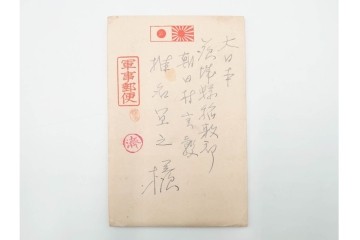 大日本
茨城縣稲敷郡
朝日村実穀
椎名宜之様
軍事郵便
済